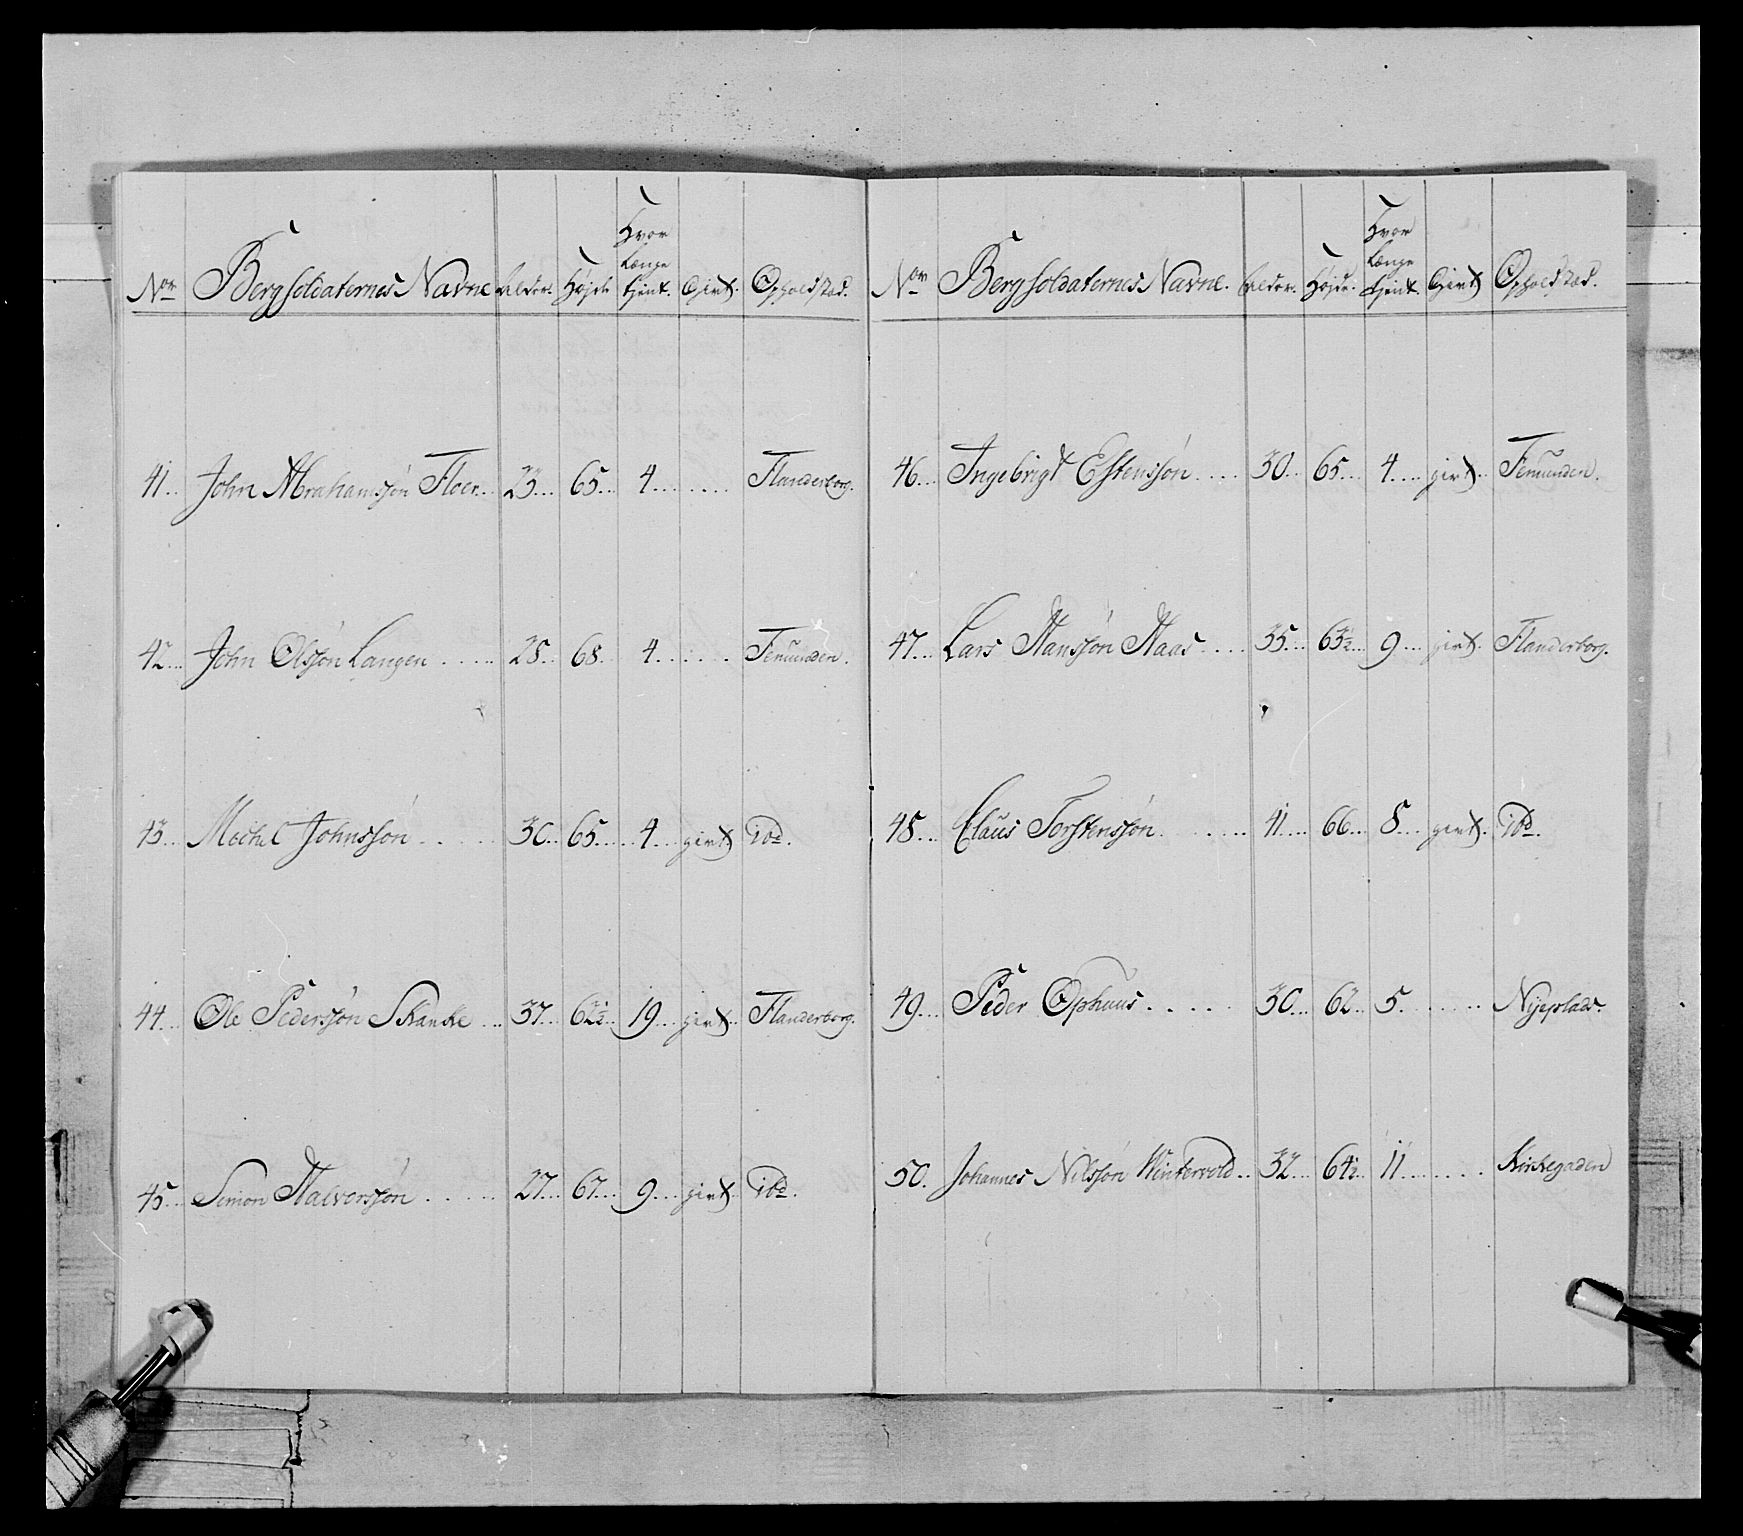 Nor Bergsoldaternes Navne Alder. Højde Hvor længe tient. Givt. Opholdstæd.
41... John Abrahamsøn Floer... 23... 65... 4....... Flanderborg.
42... John Olssøn Langen ...... 28... 68. 4....... Femunden.
43... Mechel Johnssøn ...... 30... 65... 4... givt. ibd.
44... Ole Pederssøn Skanke ... 37... 62½... 19... givt. Flanderborg.
45... Simon Halvorssøn ...... 27... 67... 9... givt. ibd.
Nor Bergsoldaternes Navne. Alder. Højde. Hvor længe tient. Givt Opholdstæd.
46... Ingebrigt Estenssøn .... 30... 65... 4... givt. Femunden.
47... Lars Hanssøn Haas .... 35... 63½... 9... givt. Flanderborg.
48... Claus Torstenssøn ...... 41... 66... 8... givt. ibd.
49... Peder Ophuus ...... 30... 62... 5....... Nyeplads.
50. Johannes Nilssøn Wintervold.. 32... 64½.. 11....... Kirkegaden